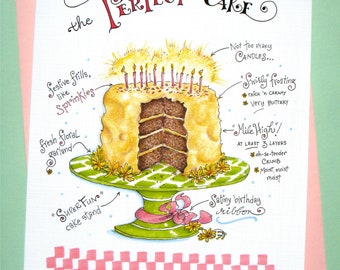 the Perfect Cake
Not too many
CANDLES...
Festive frills,
like
Sprinkles
Swirly frosting
rich 'n creamy
very buttery
Fresh floral
garland
"Mile High"!
AT LEAST 3 LAYERS
oh-so-tender
CRUMB
Moist, moist,
moist
"SUPER FUN"
cake stand
Satiny birthday
ribbon